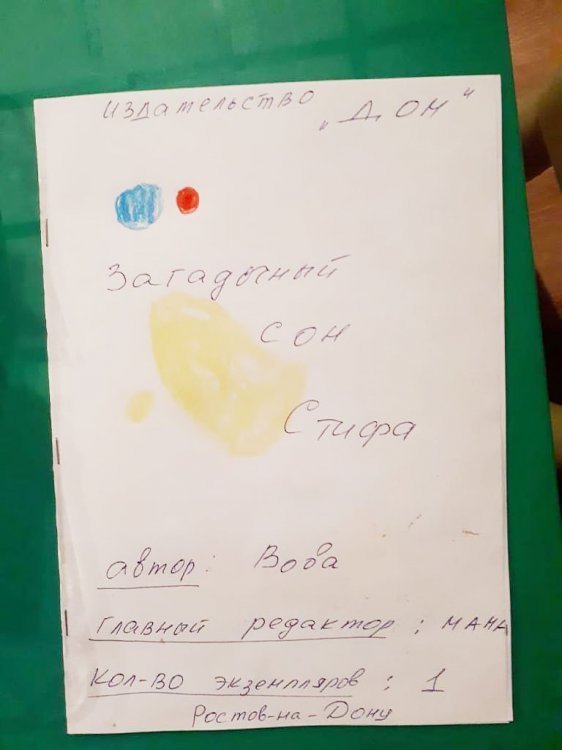 издательство „Д. ОМ“
Загадочный
сон
Стифа
автор: Вова
главный редактор: мама
кол-во экземпляров: 1
Ростов-на-Дону